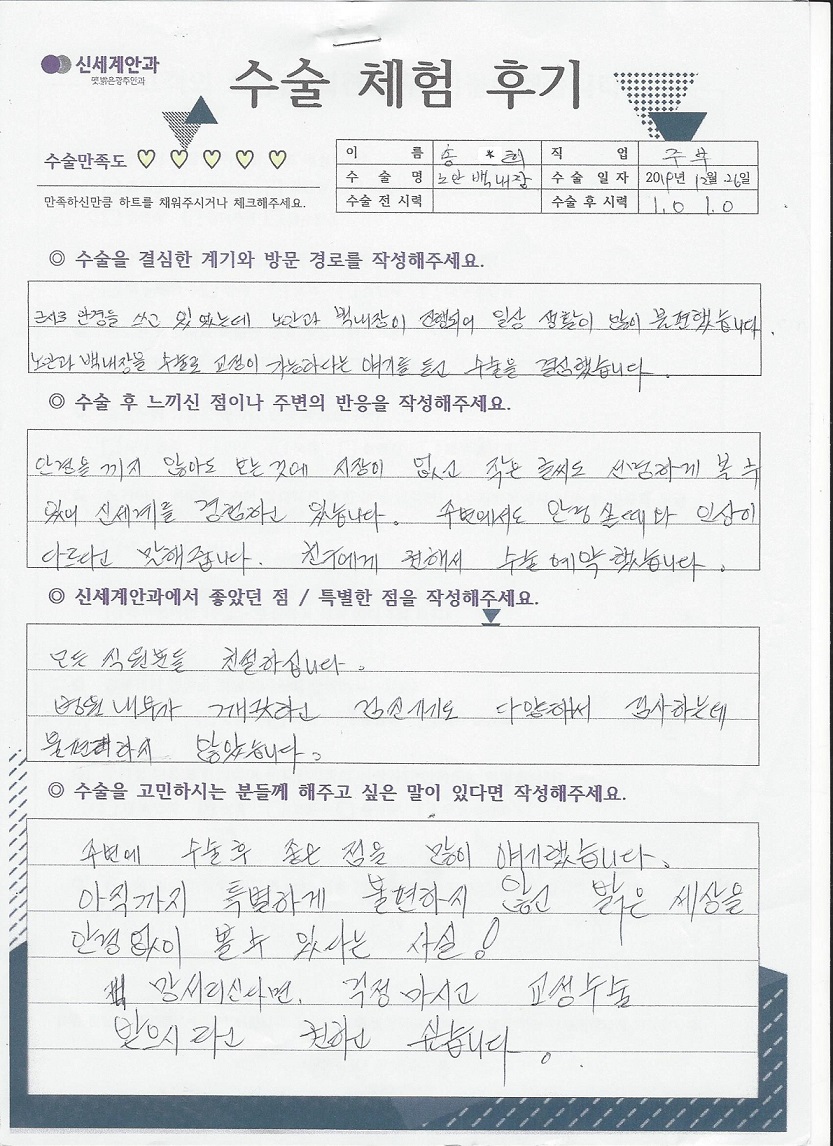 신세계안과
옛밝은광주안과
수술 체험 후기
수술만족도
만족하신만큼 하트를 채워주시거나 체크해주세요.
이 름 송 * 희 직 업 주부
수 술 명 노안 백내장 수 술 일 자 2019년 12월 26일
수술 전 시력 수술 후 시력 1.0 1.0
◎ 수술을 결심한 계기와 방문 경로를 작성해주세요.
근시로 안경을 쓰고 있었는데 노안과 백내장이 진행되어 일상 생활이 많이 불편했습니다.
노안과 백내장을 수술로 교정이 가능하다는 얘기를 듣고 수술을 결심했습니다.
◎ 수술 후 느끼신 점이나 주변의 반응을 작성해주세요.
안경을 끼지 않아도 보는것에 지장이 없고 작은 글씨도 선명하게 볼 수
있어 신세계를 경험하고 있습니다. 주변에서도 안경 쓸때와 인상이
다르다고 말해줍니다. 친구에게 권해서 수술예약했습니다.
◎ 신세계안과에서 좋았던 점 / 특별한 점을 작성해주세요.
모든 직원분들 친절하십니다.
병원내부가 쾌적하고 검진기기도 다양해서 검사하는데
불편하지 않았습니다.
◎ 수술을 고민하시는 분들께 해주고 싶은 말이 있다면 작성해주세요.
주변에 수술후 좋은 점을 많이 얘기했습니다.
아직까지 특별하게 불편하지 않고 밝은 세상을
안경 없이 볼수 있다는 사실!
망서리신다면, 걱정마시고 교정수술
받으시라고 권하고 싶습니다.